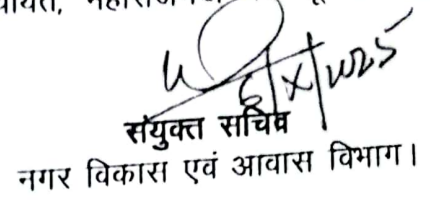 6/X/2025
संयुक्त सचिव
नगर विकास एवं आवास विभाग।